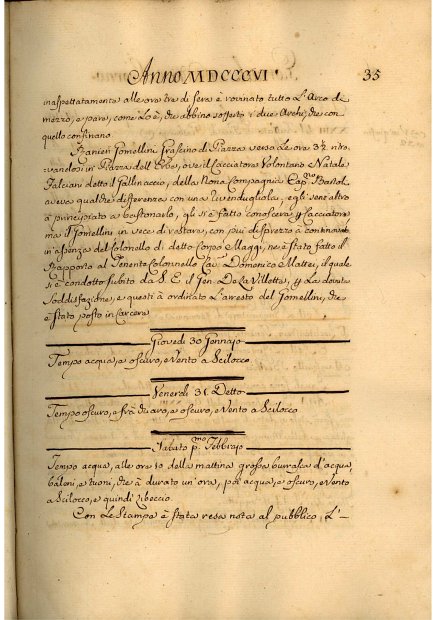 Anno MDCCCVI. 35
inaspettatamente alle ore tre di sera è rovinato tutto l'Arco di
mezzo, e pare, come lo è, che abbino sofferto i due Archi, che con
quello confinano.
Ranieri Gomellini Grascino di Piazza verso le ore 3½ ritro„
vandosi in Piazza dell'Erbe, ove il Cacciatore Volontario Natale
Falciani detto il Gallinaccio, della Nona Compagnia Cap.no Bartol.
aveva qualche differenza con una Rivendugliola, e gli senz'altro
à principiato a bastonarlo, gli si è fatto conoscere p. Cacciatore
ma il Gomellini in vece di restare, con più disprezzo à continovato
in assenza del Colonello di detto Corpo Maggi, ne è stato fatto il
Rapporto al Tenente Colonnello Cav. Domenico Mattei, il quale
si è condotto subito da S. E. il Gen. De La Villette, p. La dovuta
Soddisfazione, e questi à ordinato L'arresto del Gomellini, che
è stato posto in Carcere
Giovedì 30 Gennajo
Tempo acqua, e oscuro, e Vento a Scilocco
Venerdì 31. Detto
Tempo oscuro, e frà chiaro, e oscuro, e Vento a Scilocco
Sabato p.mo Febbrajo
Tempo acqua, alle ore 10 della mattina grossa burrasca d'acqua,
baleni, e tuoni, che à durato un'ora, poi acqua, e oscuro, e Vento
a Scilocco, e quindi Libeccio
Con Le Stampe è stata resa nota al pubblico, L'–